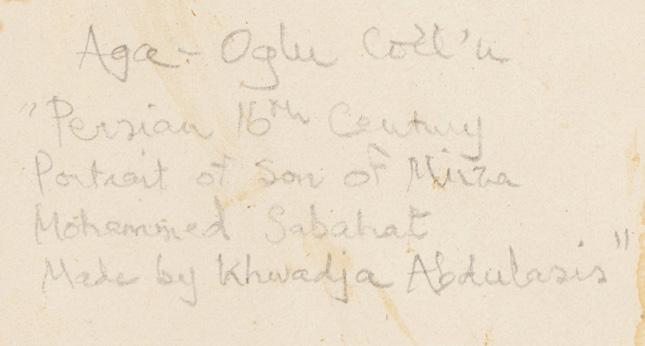 Aga-Oglu Coll'n
"Persian 16th Century
Portrait of Son of Mirza
Mohammed Sabahat
Made by Khwadja Abdulasis"